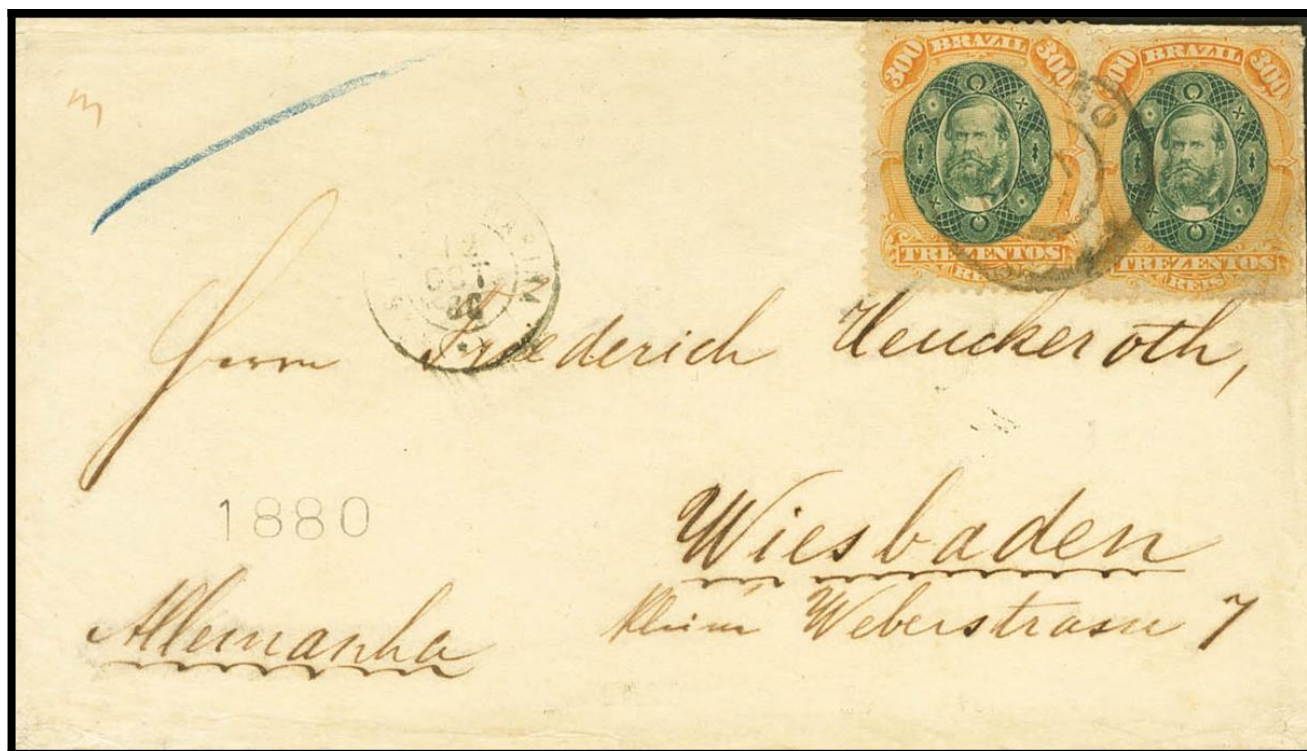 300 BRAZIL 300
TREZENTOS
REIS
BRAZIL 300
TREZENTOS
REIS
12
OCT
Herrn Friederich Heuckeroth,
1880
Wiesbaden
Allemanha
Weberstrasse 7